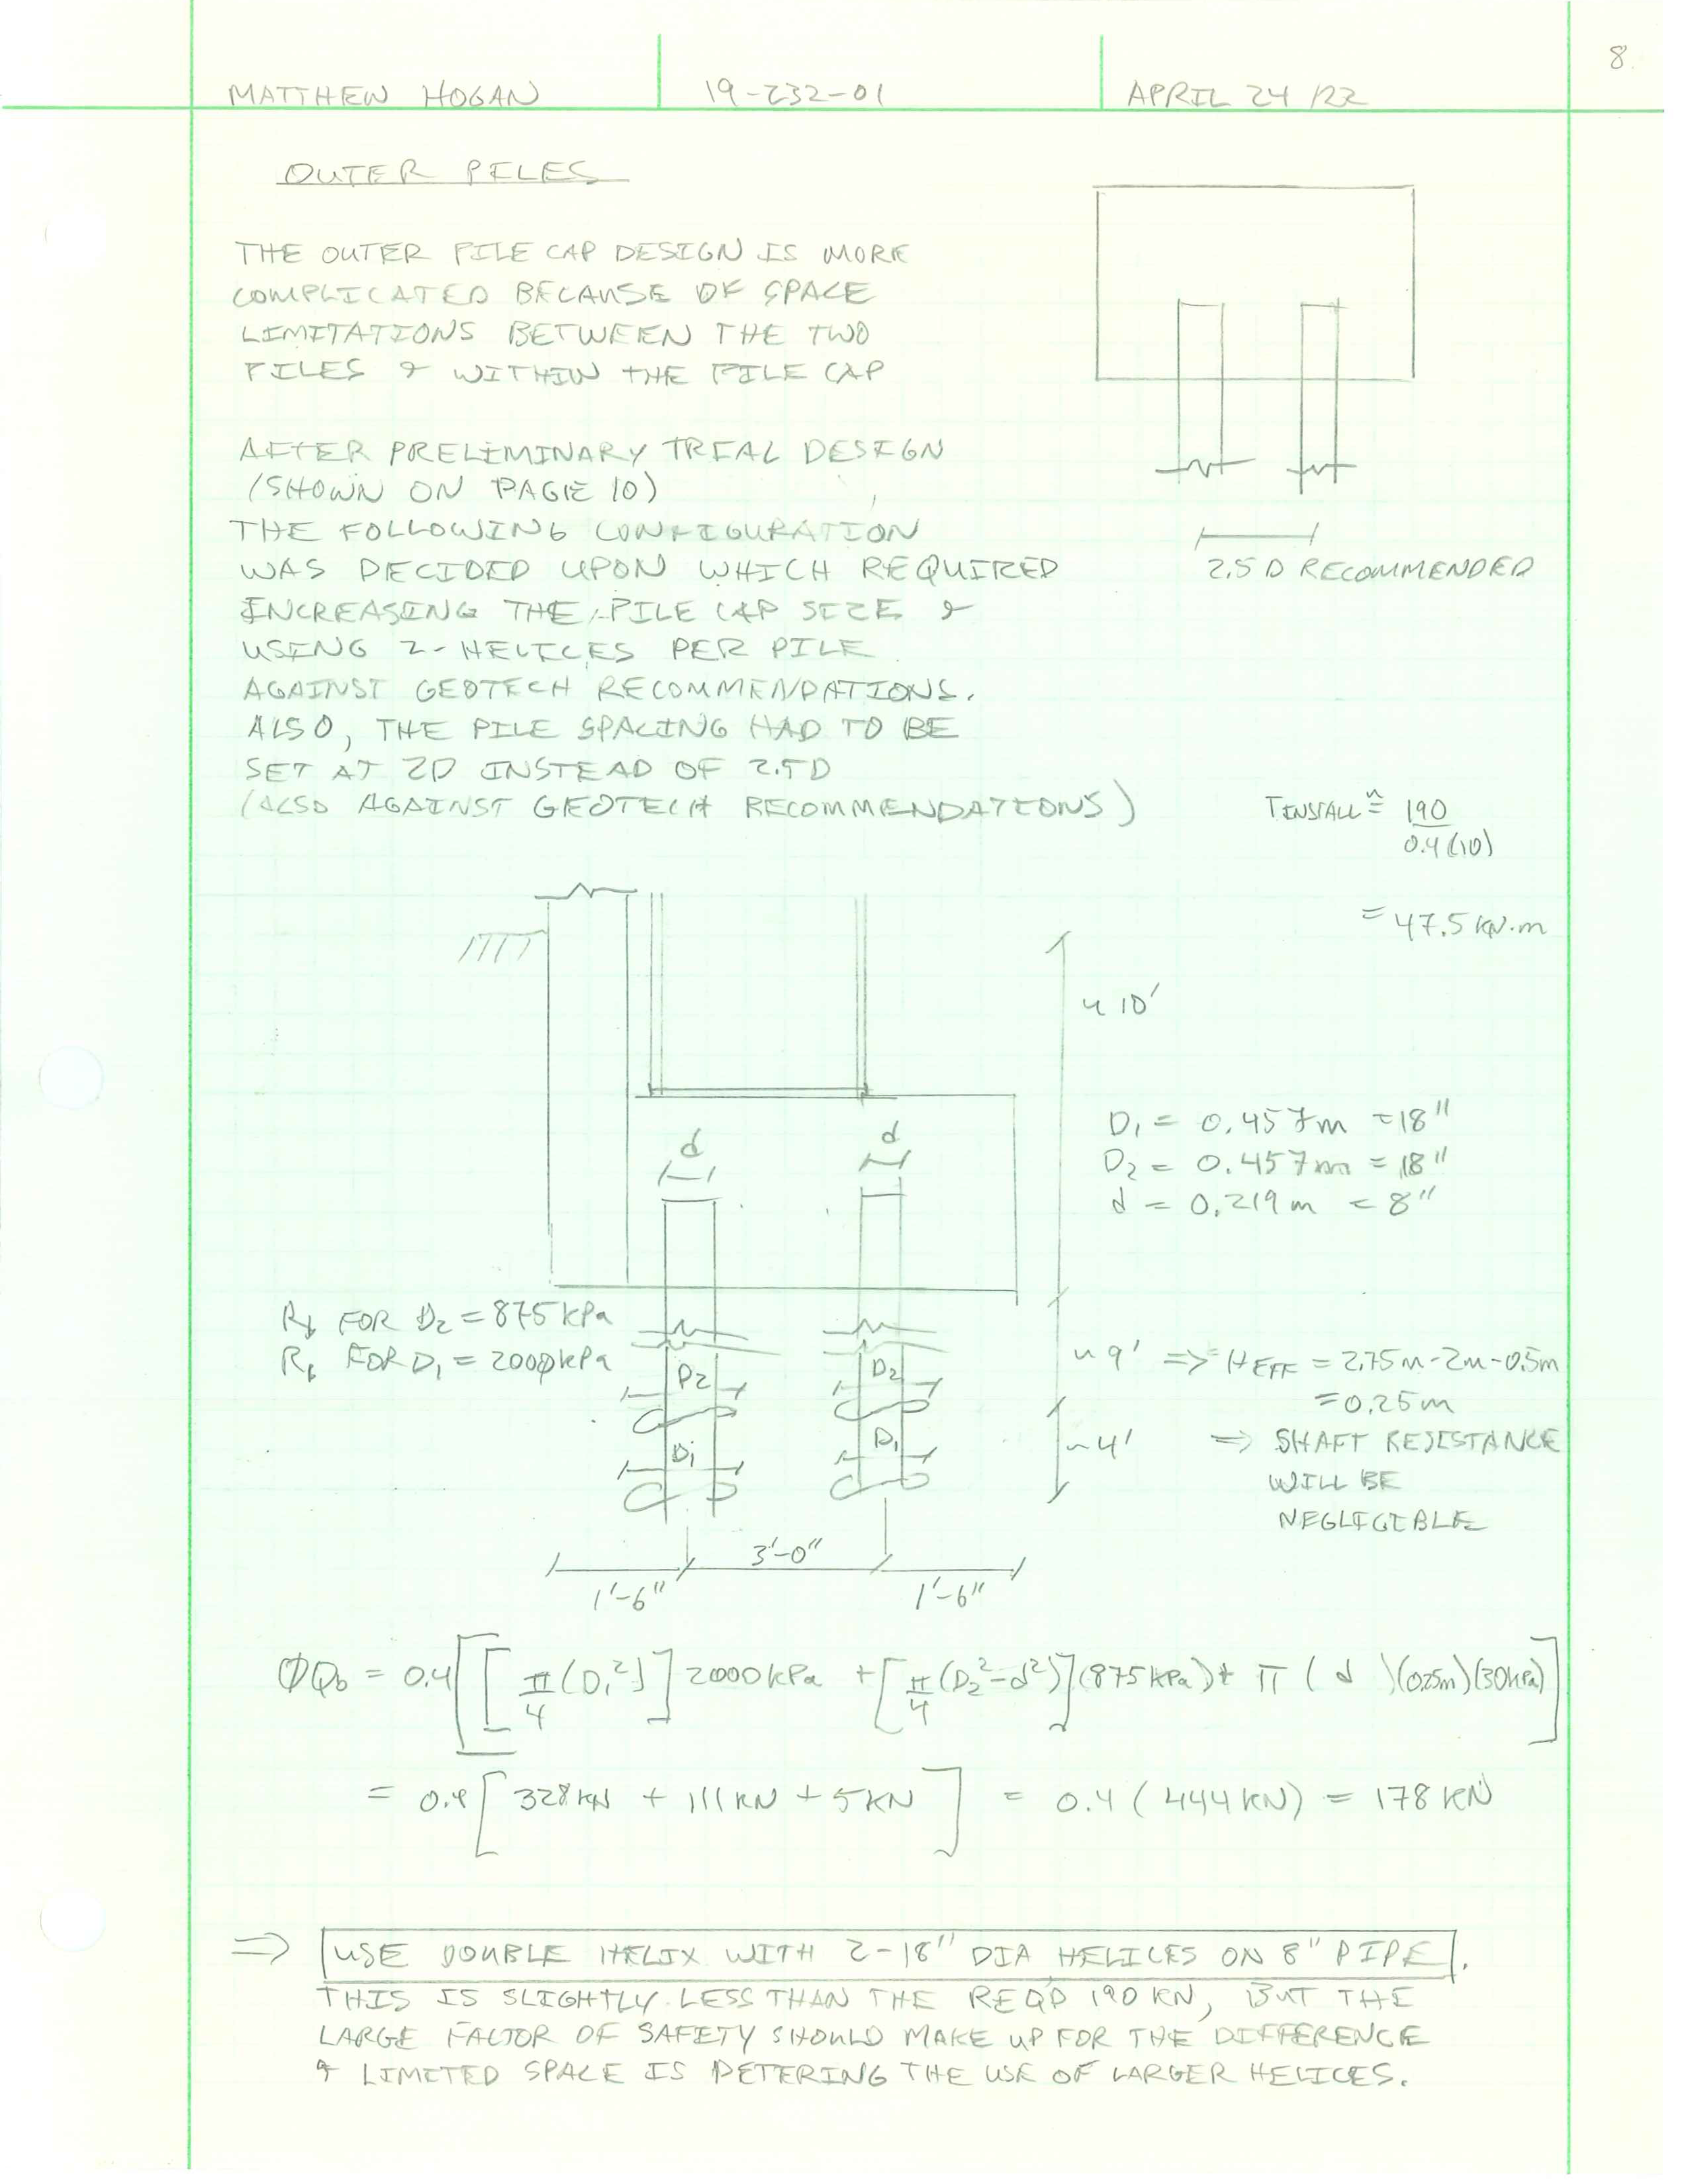 8.
MATTHEW HOGAN 19-232-01 APRIL 24/22
OUTER PILES
THE OUTER PILE CAP DESIGN IS MORE
COMPLICATED BECAUSE OF SPACE
LIMITATIONS BETWEEN THE TWO
PILES & WITHIN THE PILE CAP
AFTER PRELIMINARY TRIAL DESIGN
(SHOWN ON PAGE 10)
THE FOLLOWING CONFIGURATION
WAS DECIDED UPON WHICH REQUIRED
INCREASING THE PILE CAP SIZE &
USING 2-HELICES PER PILE
AGAINST GEOTECH RECOMMENDATIONS.
ALSO, THE PILE SPACING HAD TO BE
SET AT 2D INSTEAD OF 2.5D
(ALSO AGAINST GEOTECH RECOMMENDATIONS)
2.5 D RECOMMENDED
TINSTALL ≈ 190
0.4(10)
= 47.5 KN·m
~ 10'
D1 = 0.457m = 18"
D2 = 0.457m = 18"
d = 0.219m = 8"
d d
Rb FOR D2 = 875 kPa
Rb FOR D1 = 2000kPa
D2 D2
D1 D1
~ 9' => HEFF = 2.75m-2m-0.5m
= 0.25m
~4' => SHAFT RESISTANCE
WILL BE
NEGLIGIBLE
3'-0"
1'-6" 1'-6"
ΦQb = 0.4[[π/4 (D1²)] 2000kPa + [π/4 (D2²-d²)](875kPa)+ π ( d )(0.25m)(30kPa)]
= 0.4[328KN + 111KN + 5KN] = 0.4 (444KN) = 178KN
=> USE DOUBLE HELIX WITH 2-18" DIA HELICES ON 8" PIPE.
THIS IS SLIGHTLY LESS THAN THE REQ'D 190 KN, BUT THE
LARGE FACTOR OF SAFETY SHOULD MAKE UP FOR THE DIFFERENCE
& LIMITED SPACE IS DETERING THE USE OF LARGER HELICES.